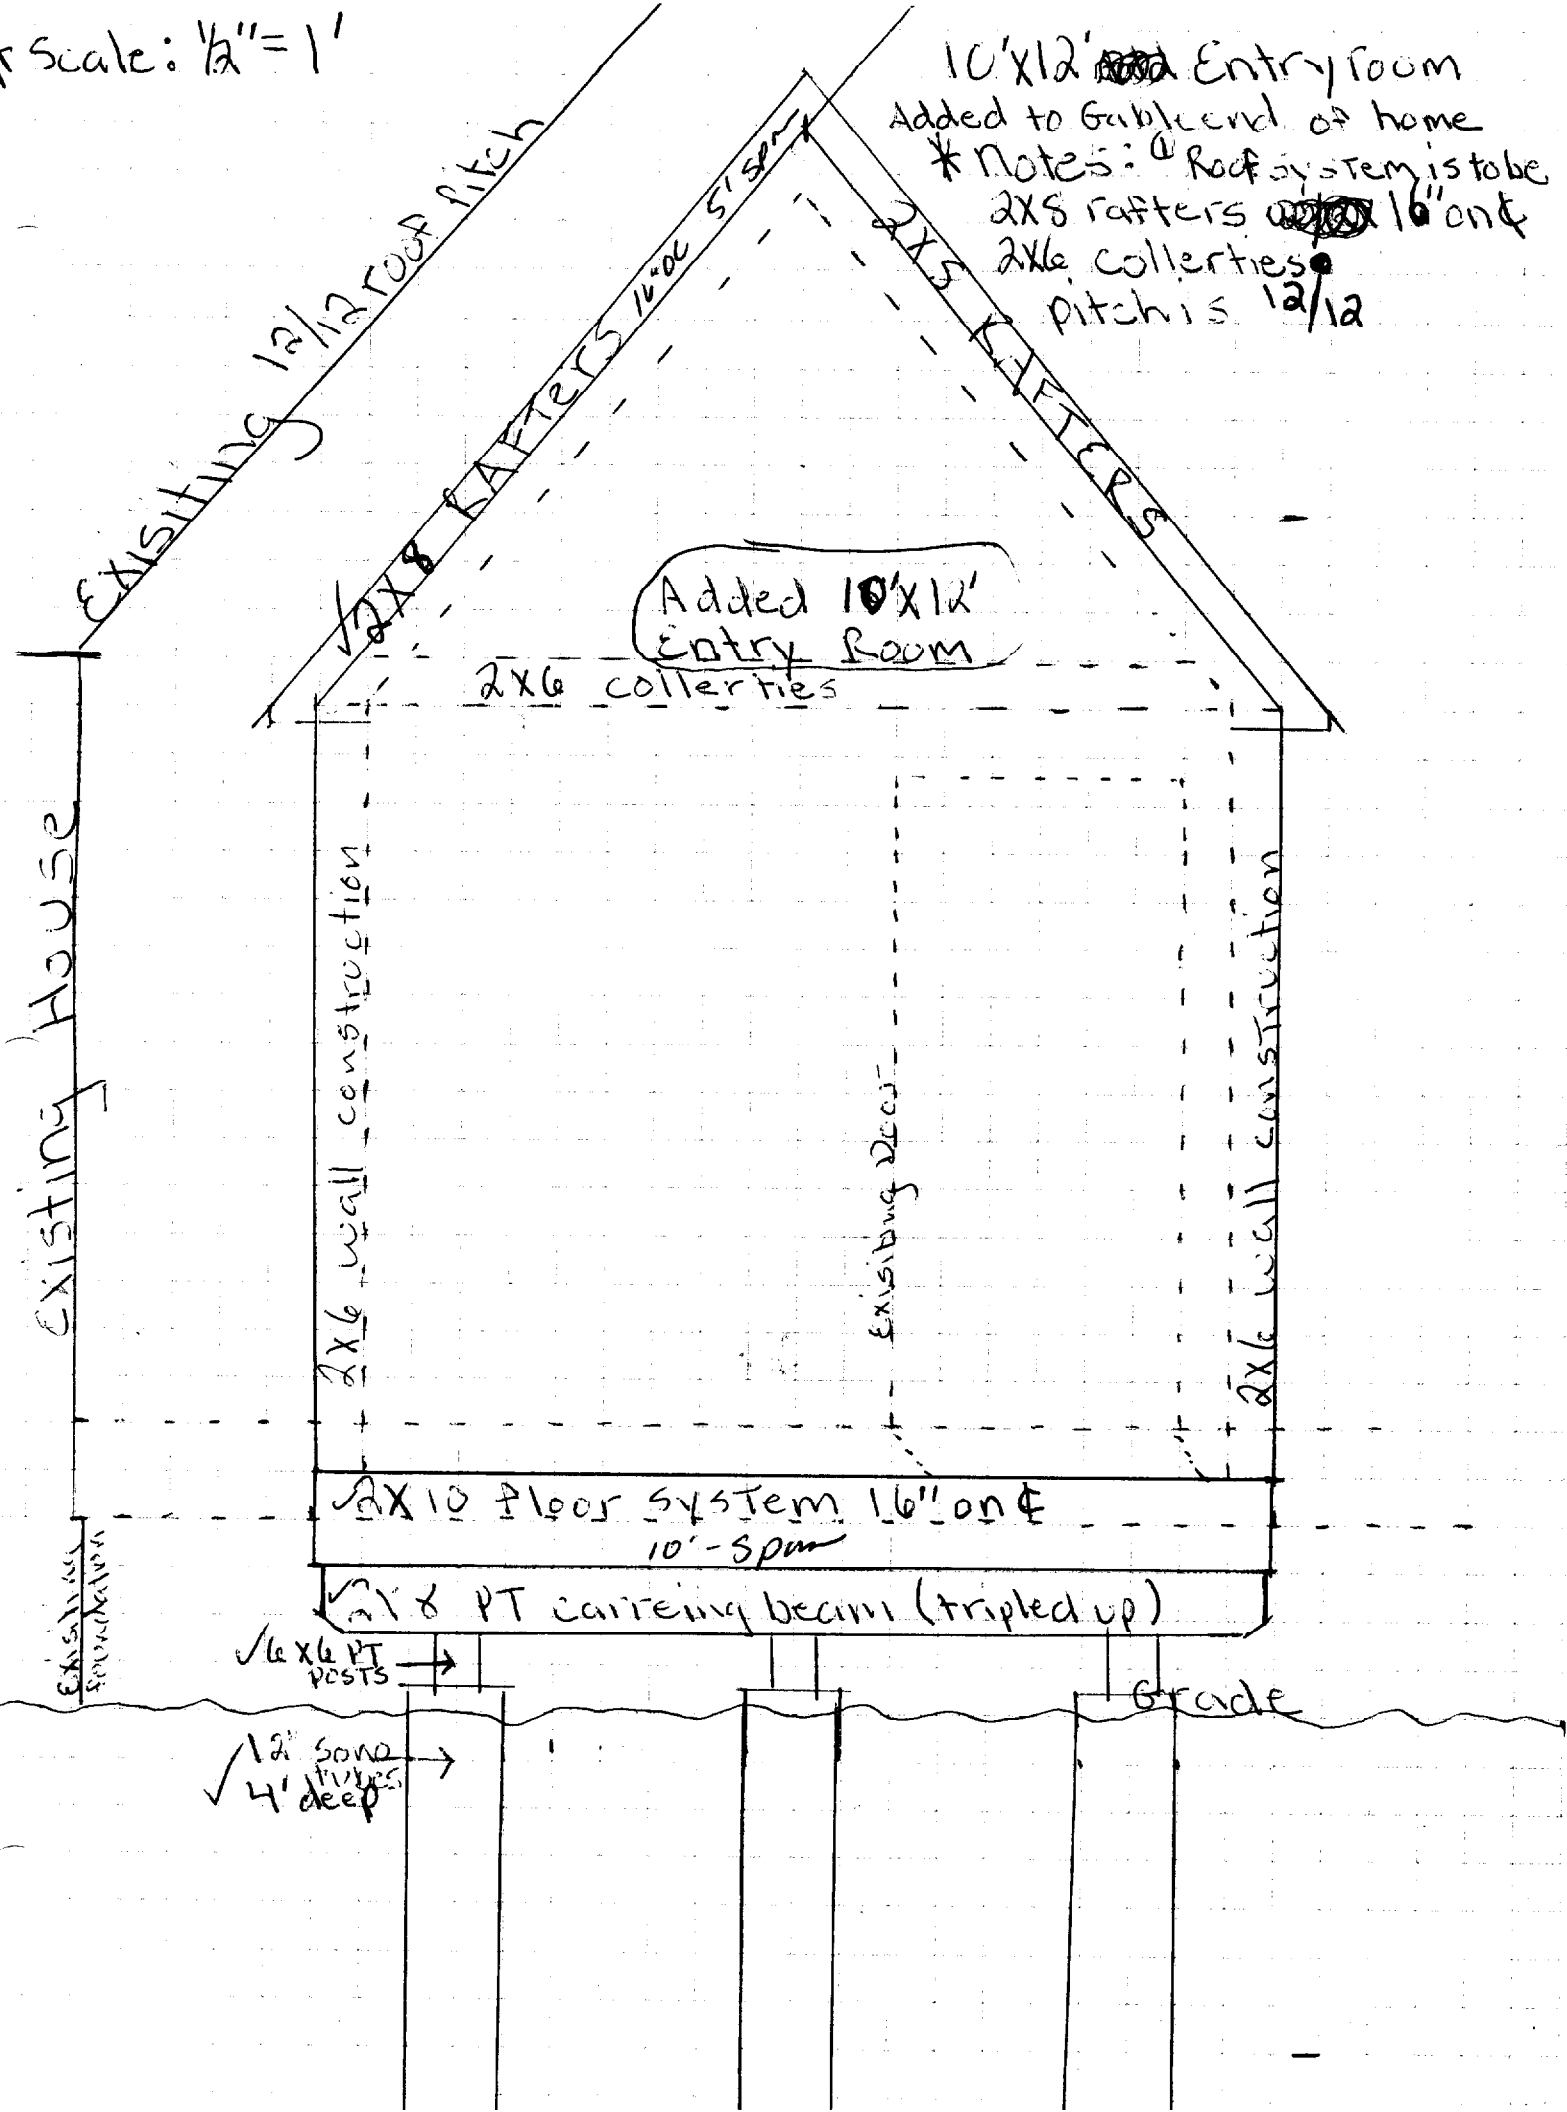 Scale: 1/2" = 1'
10'X12' Entry room
Added to Gable end of home
* Notes: ① Roof system is to be
2X8 rafters 16" on ℄
2X6 collerties
pitch is 12/12
Exisiting 12/12 roof pitch
√2X8 RAFTers 16"OC 5' Span
2X8 RAFTERS
Added 10'X12'
Entry Room
2X6 collerties
Existing House
2X6 wall construction
Exisiting Door
2X6 wall consTruction
√2X10 floor sysTem 16" on ℄
10'-Span
Existing
foundation
√2X8 PT carreing beam (tripled up)
√6X6 PT
POSTS
Grade
√12" sono
tubes
4' deep